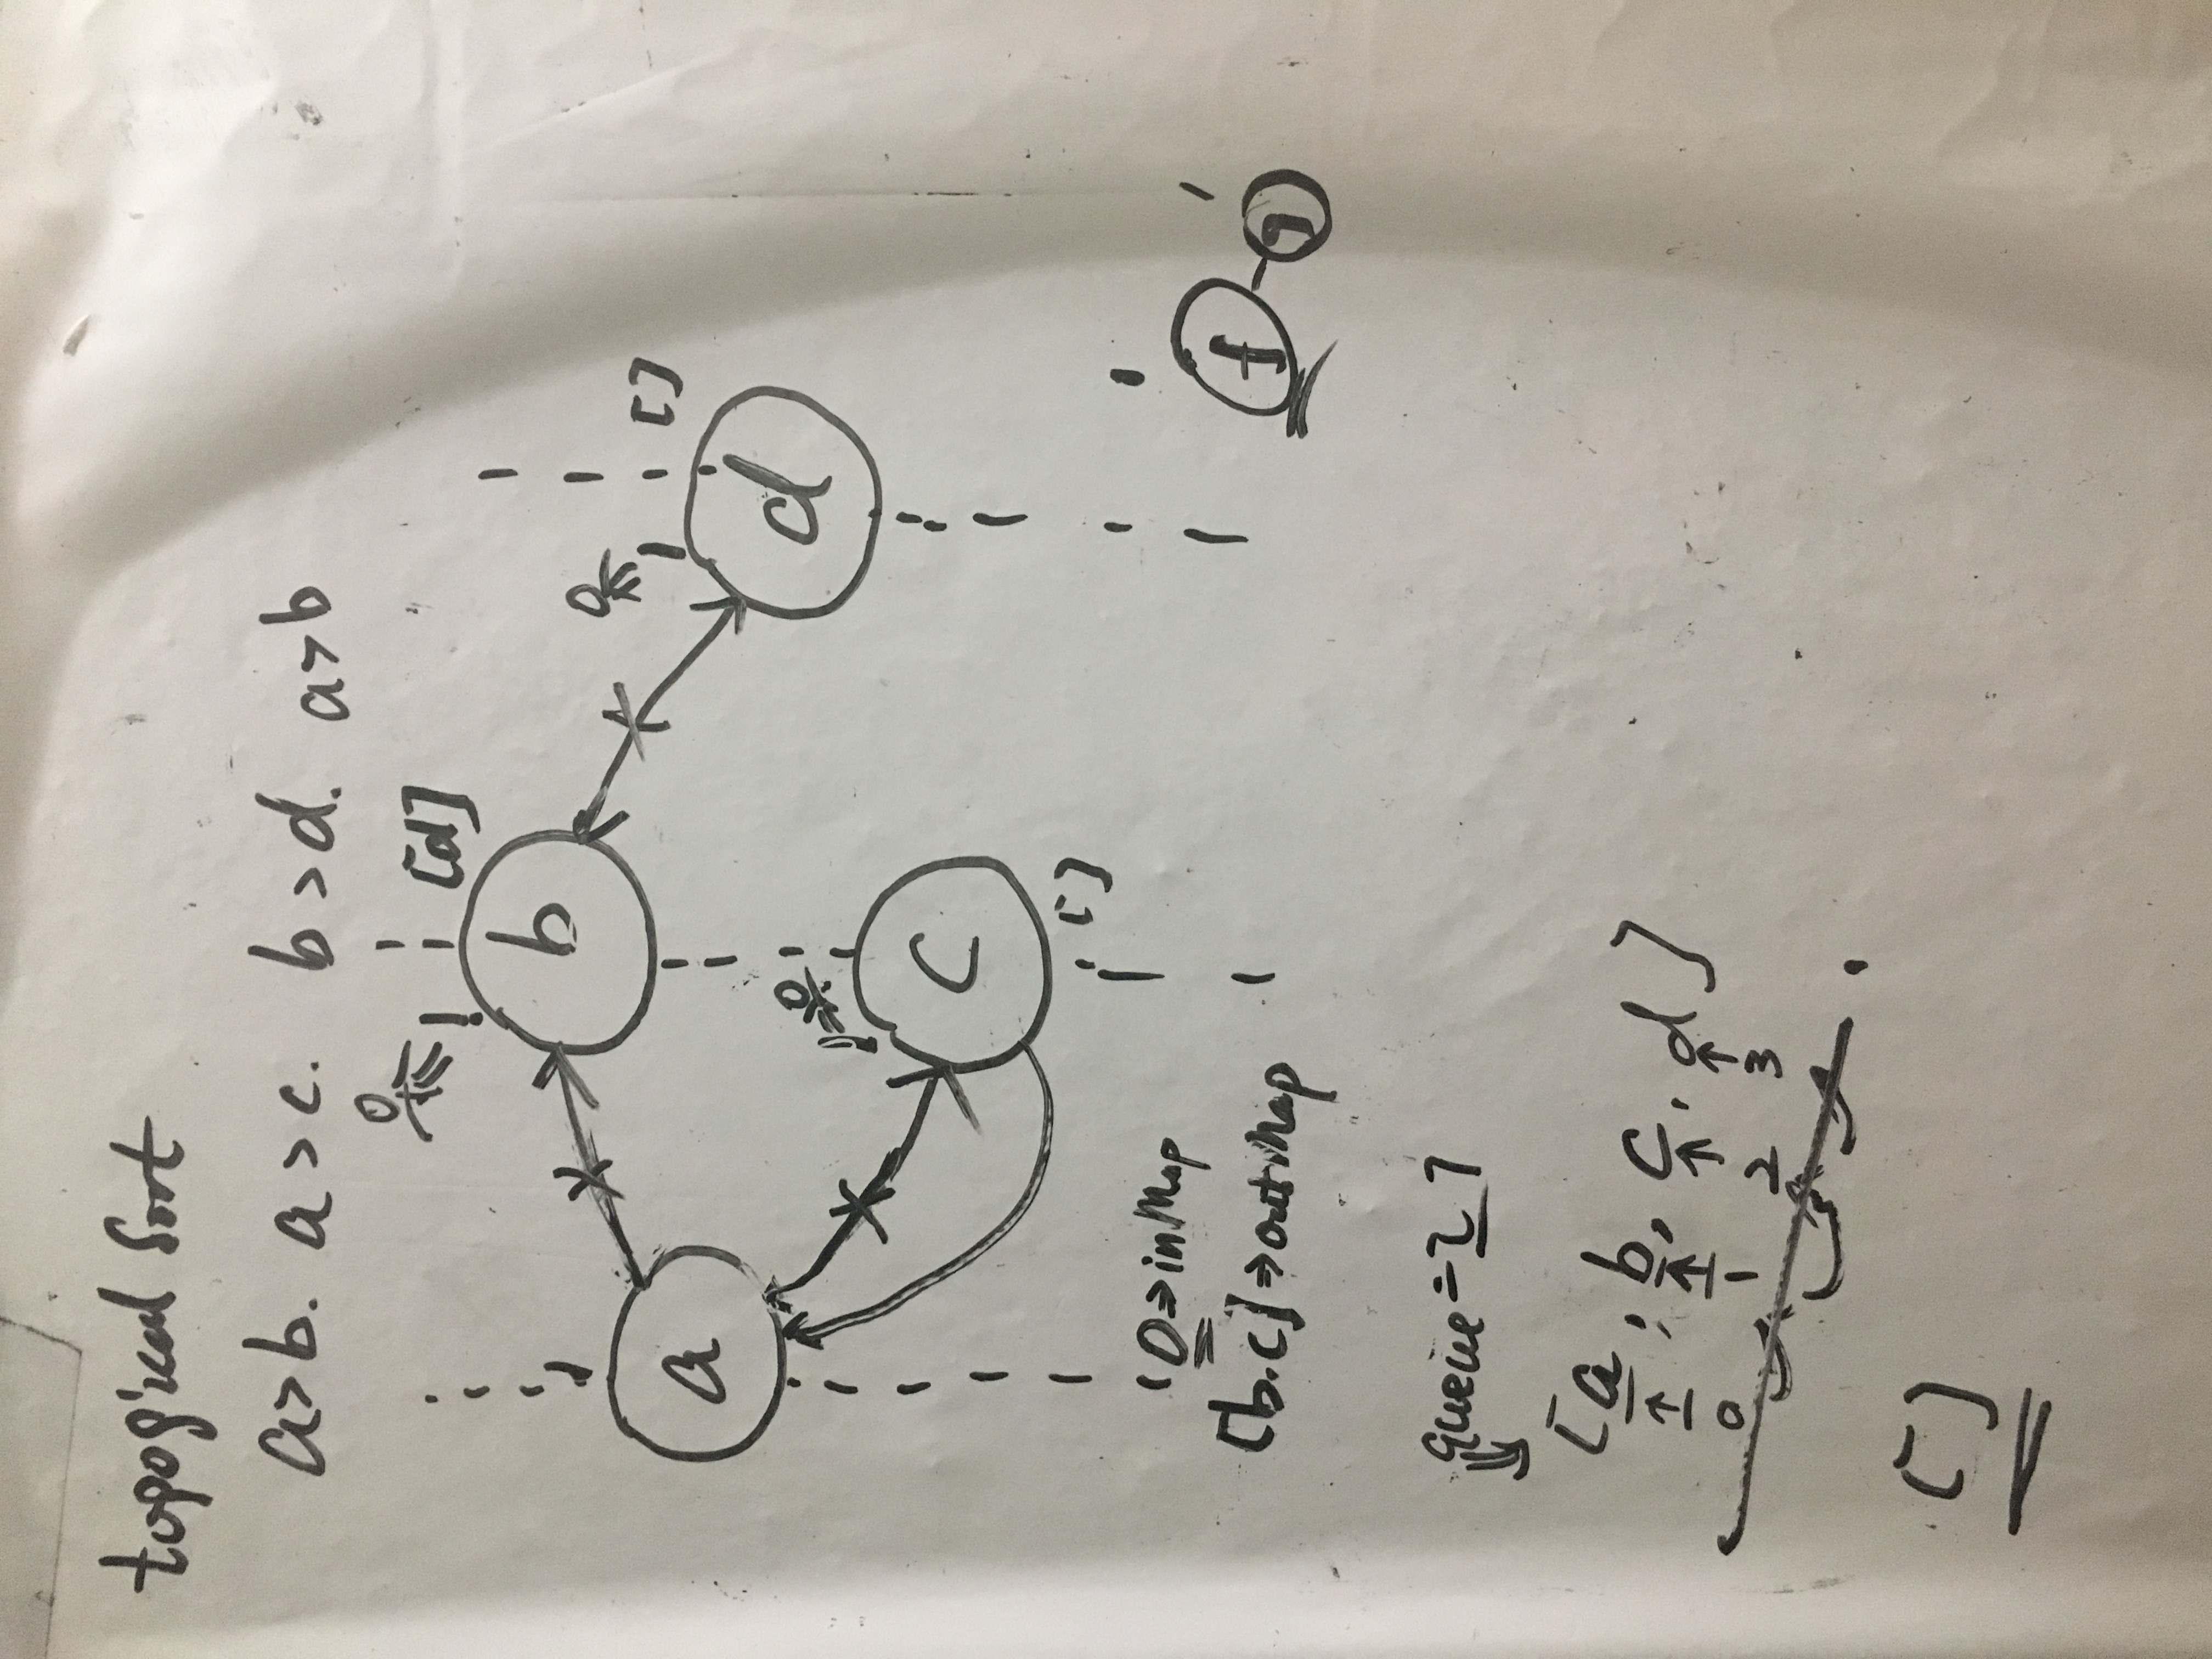 topogical Sort
a>b. a>c. b>d. a>b
0
[d]
b
a
0
[]
d
0
c
[]
0⇒inMap
[b.c]⇒outMap
f
g
queue=[]
[a, b, c, d]
0 1 2 3
[]